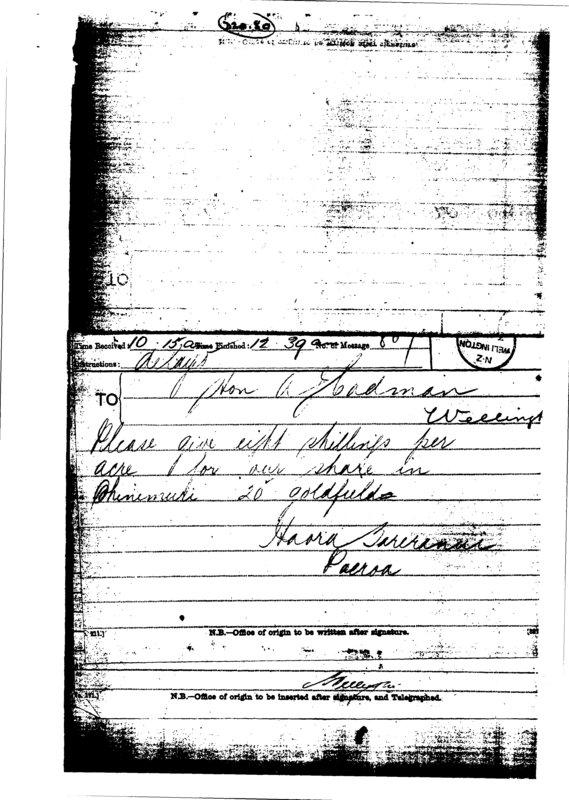 N.B.—Office of origin to be written after signature.
10
Time Received: 10.15 a Time Finished: 12.39 No. of Message
Instructions: Delayed
N.Z
WELLINGTON
TO Hon A J Cadman
Wellingt
Please give eight shillings per
acre for our share in
Ohinemuri 20 goldfields
Haora Tareranui
Paeroa
N.B.—Office of origin to be written after signature.
N.B.—Office of origin to be inserted after signature, and Telegraphed.